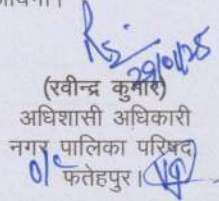 29/01/25
(रवीन्द्र कुमार)
अधिशासी अधिकारी
नगर पालिका परिषद
फतेहपुर।